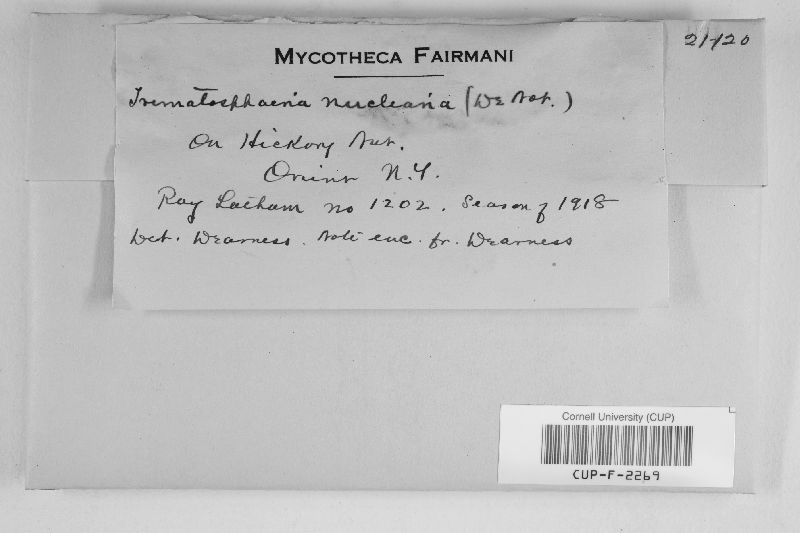 21/120
MYCOTHECA FAIRMANI
Trematosphaeria nuclearia (De Not.)
On Hickory Nut.
Orient N.Y.
Roy Latham no 1202. Season of 1918
Det. Dearness. Note enc. fr. Dearness
Cornell University (CUP)
CUP-F-2269